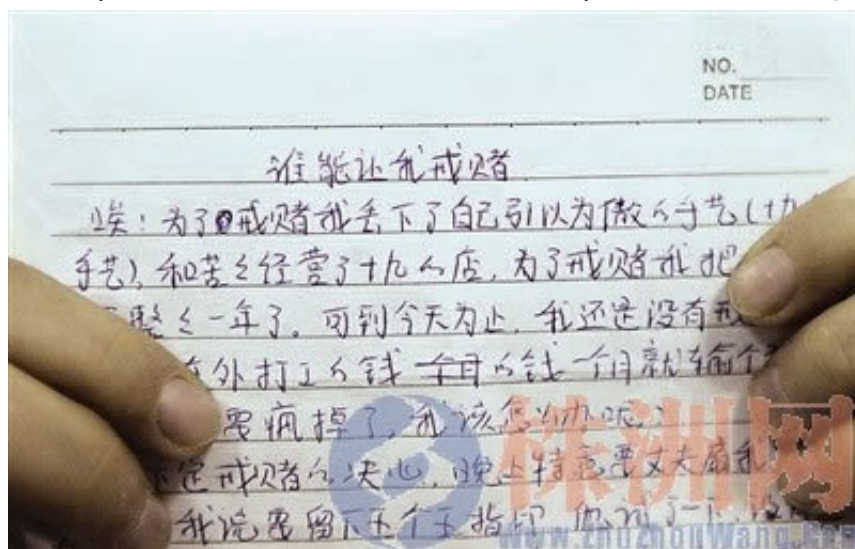 NO.
DATE
谁能让我戒赌
唉!为了戒赌我丢下了自己引以为傲的手艺(十九
手艺),和苦々经营了十九的店,为了戒赌我把
整々一年了。可到今天为止,我还是没有戒
在外打工的钱 个月的钱一个月就输个
要疯掉了,我该怎么办呢?
下定戒赌的决心,晚上特意要丈夫扇我
我说要留下五个手指印,他 了一下,没
株洲网
www.zhuzhouwang.com